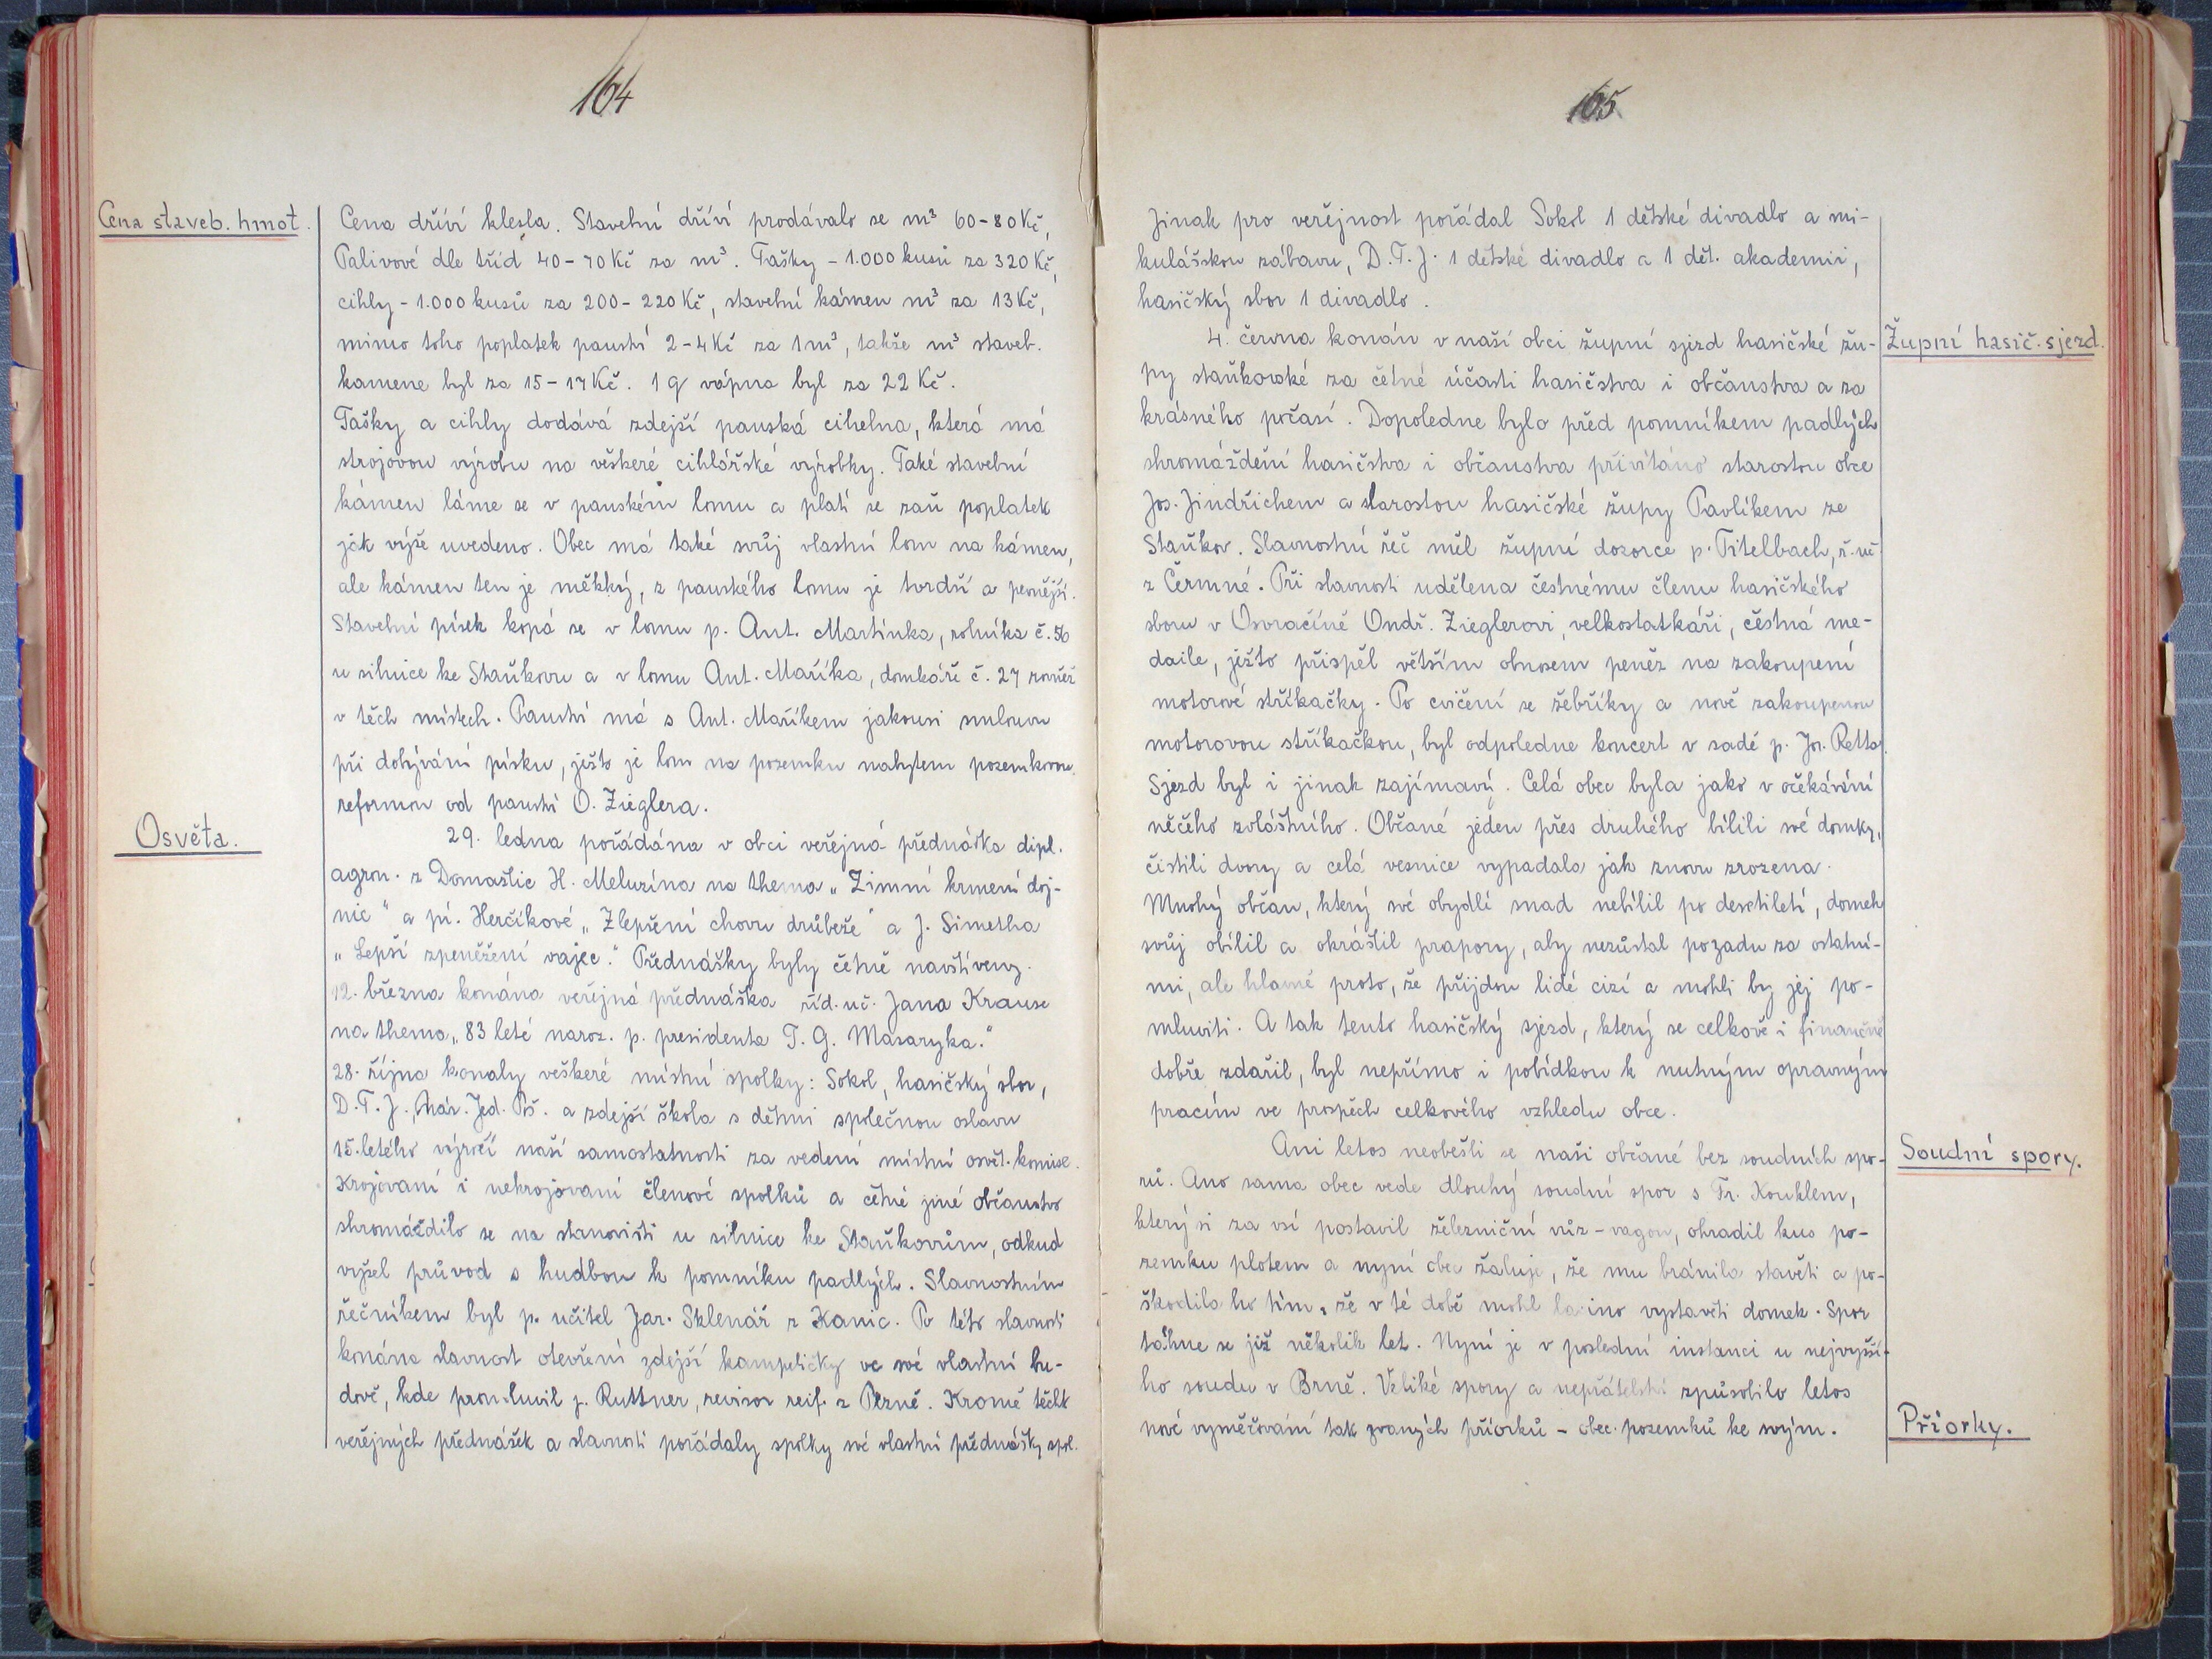 164
Cena staveb. hmot.
Cena dříví klesla. Stavební dříví prodávalo se m³ 60-80 Kč,
Palivové dle tříd 40-70 Kč za m³. Tašky - 1.000 kusů za 320 Kč,
cihly - 1.000 kusů za 200-220 Kč, stavební kámen m³ za 13 Kč,
mimo toho poplatek panství 2-4 Kč za 1 m³, takže m³ staveb.
kamene byl za 15-17 Kč. 1 q vápna byl za 22 Kč.
Tašky a cihly dodává zdejší panská cihelna, která má
strojovou výrobu na veškeré cihlářské výrobky. Také stavební
kámen láme se v panském lomu a platí se zaň poplatek
jak výše uvedeno. Obec má také svůj vlastní lom na kámen,
ale kámen ten je měkký, z panského lomu je tvrdší a pevnější.
Stavební písek kopá se v lomu p. Ant. Martínka, rolníka č. 56
u silnice ke Staňkovu a v lomu Ant. Maříka, domkáři č. 27 rovněž
v těch místech. Panství má s Ant. Maříkem jakousi smlouvu
při dobývání písku, ježto je lom na pozemku nabytem pozemkovou
reformou od panství O. Zieglera.
Osvěta.
29. ledna pořádána v obci veřejná přednáška dipl.
agron. z Domažlic H. Meluzína na thema „Zimní krmení doj-
nic" a pí. Herčíkové „Zlepšení chovu drůbeže" a J. Simetha
„Lepší zpeněžení vajec." Přednášky byly četně navštíveny.
12. března konána veřejná přednáška říd. uč. Jana Krause
na thema „83 leté naroz. p. presidenta T. G. Masaryka."
28. října konaly veškeré místní spolky: Sokol, hasičský sbor,
D.T.J., Nár. Jed. Poš. a zdejší škola s dětmi společnou oslavu
15. letého výročí naší samostatnosti za vedení místní osvět. komise.
Krojovaní i nekrojovaní členové spolků a četné jiné občanstvo
shromáždilo se na stanovišti u silnice ke Staňkovům, odkud
vyšel průvod s hudbou k pomníku padlých. Slavnostním
řečníkem byl p. učitel Jar. Sklenář z Kanic. Po této slavnosti
konána slavnost otevření zdejší kampeličky ve své vlastní bu-
dově, kde promluvil p. Ruttner, revisor reif. z Plzně. Kromě těcht
veřejných přednášek a slavností pořádaly spolky své vlastní přednášky spol.
165
Jinak pro veřejnost pořádal Sokol 1 dětské divadlo a mi-
kulášskou zábavu, D.T.J. 1 dětské divadlo a 1 dět. akademii,
hasičský sbor 1 divadlo.
Župní hasič. sjezd.
4. června konán v naší obci župní sjezd hasičské žu-
py staňkovské za četné účasti hasičstva i občanstva a za
krásného počasí. Dopoledne bylo před pomníkem padlých
shromáždění hasičstva i občanstva přivítáno starostou obce
Jos. Jindřichem a starostou hasičské župy Pavlíkem ze
Staňkov. Slavnostní řeč měl župní dozorce p. Titelbach, ř. uč.
z Čermné. Při slavnosti udělena čestnému členu hasičského
sboru v Osvračíně Ondř. Zieglerovi, velkostatkáři, čestná me-
daile, ježto přispěl větším obnosem peněz na zakoupení
motorové stříkačky. Po cvičení se žebříky a nově zakoupenou
motorovou stříkačkou, byl odpoledne koncert v sadě p. Jos. Retta.
Sjezd byl i jinak zajímavý. Celá obec byla jako v očekávání
něčeho zvláštního. Občané jeden přes druhého bílili své domky,
čistili dvory a celá vesnice vypadala jak znovu zrozena.
Mnohý občan, který své obydlí snad nebílil po desetiletí, domek
svůj obílil a okrášlil prapory, aby nezůstal pozadu za ostatní-
mi, ale hlavně proto, že přijdou lidé cizí a mohli by jej po-
mluviti. A tak tento hasičský sjezd, který se celkově i finančně
dobře zdařil, byl nepřímo i pobídkou k nutným opravným
pracím ve prospěch celkového vzhledu obce.
Soudní spory.
Ani letos neobešli se naši občané bez soudních spo-
rů. Ano sama obec vede dlouhý soudní spor s Fr. Kouklem,
který si za vsí postavil železniční vůz - vagon, ohradil kus po-
zemku plotem a nyní obec žaluje, že mu bránila stavěti a po-
škodila ho tím, že v té době mohl lacino vystavěti domek. Spor
táhne se již několik let. Nyní je v poslední instanci u nejvyšší-
ho soudu v Brně. Veliké spory a nepřátelství způsobilo letos
Příorky.
nové vyměřování tak zvaných příorků - obec. pozemků ke svým.